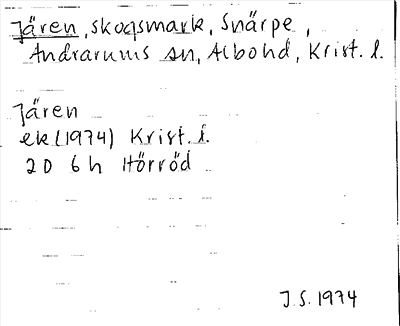 Jären, skogsmark, Snärpe,
Andrarums sn, Albohd, Krist. l.
Jären
ek (1974) Krist. l.
2D 6h Hörröd
J.S. 1974